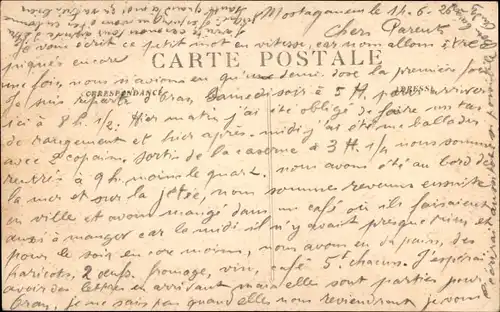 Mostaganem le 14-6-26
Chers Parents
Je vous écrit ce petit mot en vitesse, car nous allons être
piqués encore
CARTE POSTALE
une fois, nous n'avions eu qu'une demi-dose la première fois
CORRESPONDANCE ADRESSE
Je suis reparti d'Oran Samedi soir à 5 H. pour arriver
ici à 8 h. 1/2. Hier matin j'ai été obligé de faire un tas
de rangement et hier après-midi j'ai été me ballader
avec 2 copains. Sortis de la caserne à 3 H. 1/2 nous sommes
rentrés à 9 h. moins le quart. nous avons été au bord de
la mer et sur la jetée, nous sommes revenus ensuite
en ville et avons mangé dans un café où ils faisaient
aussi à manger car le midi il n'y avait presque rien, et
pour le soir encore moins, nous avons eu du pain, des
haricots, 2 oeufs, fromage, vin, café 5f chacun. J'espérais
avoir des lettres en arrivant mais elle sont parties pour
Oran, je ne sais pas quand elles reviendront je vous